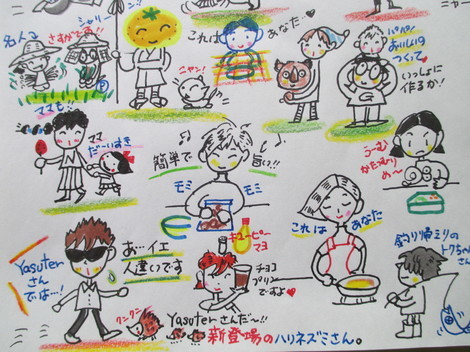 シャリー
名人で
さすがです!!
ママも!!
ニャン!
これは
あなた
パパが
おいしいの
つくって
いっしょに
作るか!
ママ
だーいすき
簡単で
旨い!!
モミ
モミ
キユーピー
マヨ
これは
あなた
うーむ
かたつむり
め〜
釣り帰りの
トクちゃん
さん
Yasuten
さん
では…!
お…イエ
人違いです
クンクン
チョコ
プリン
ですよ
Yasutenさんだ〜!!
新登場のハリネズミさん。